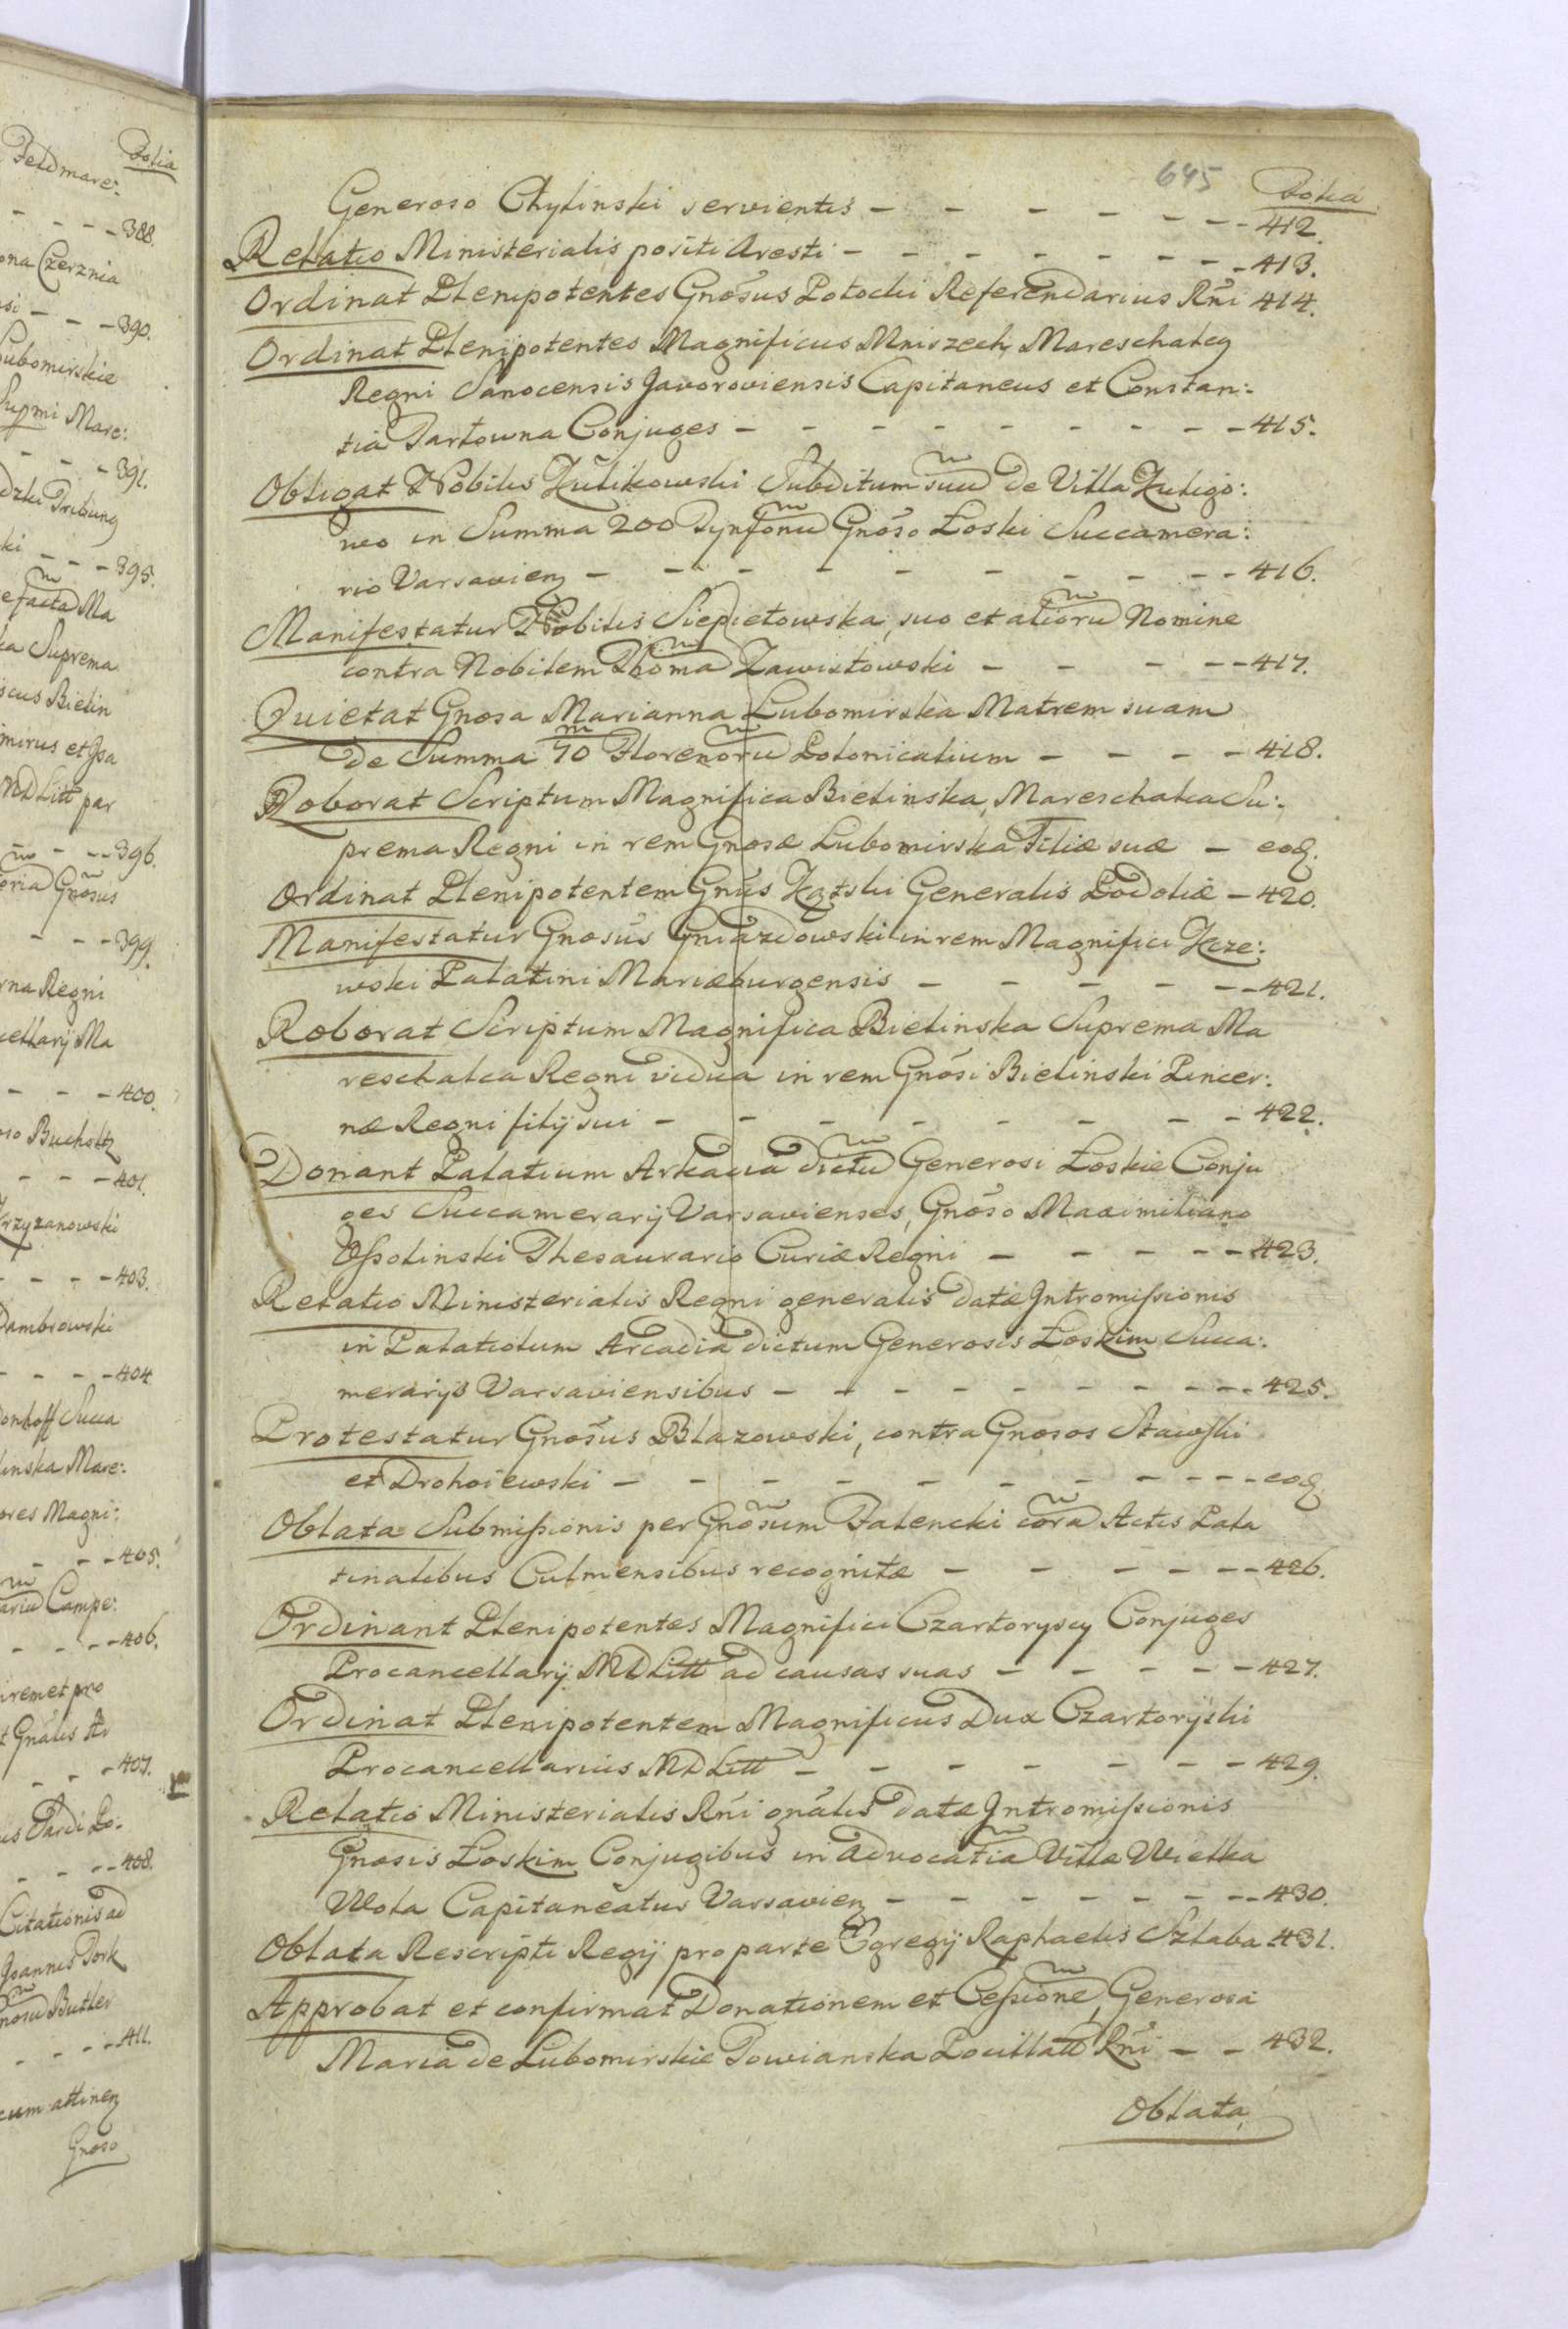 Feldmare:
Folia
- - - - 388.
ona Czerznia
si - - - 390.
Lubomirskie
Supmi Mare:
- - - 391.
dzki Tribung
ki - - - 395.
efacta Ma
ka Suprema
scus Bielin
mirus et Jsa
MDLitt par
- - - 396.
oria Gnosus
- - - 399.
rna Regni
cellarij Ma
- - - 400.
oso Bucholtz
- - - 401.
Krzyzanowski
- - - - 403.
Dambrowski
- - - - 404
Donhoff Succa
linska Mare:
ores Magni:
- - - 405.
Campe:
- - - - 406.
iremet pro
t Gnalis
- - - 407.
- - - - 408.
Citationis ad
Joannis Jork
nosu Butler
- - - - 411.
cum attinen
Gnoso
645
Folia
Generoso Chylinski servientis - - - - - - - 412.
Relatio Ministerialis positi Aresti - - - - - - - 413.
Ordinat Plenipotentes Gnosus Potocki Referendarius Rni 414.
Ordinat Plenipotentes Magnificus Mniszech, Mareschalcg
Regni Sanocensis Javoroviensis Capitaneus et Constan:
tia Tarłowna Conjuges - - - - - - - - 415.
Obligat Nobilis Zulikowski Subditum suu de Villa Zuligo:
wo in Summa 200 Tynfonu Gnoso Łoski Succamera:
rio Varsavien - - - - - - - - 416.
Manifestatur Nobilis Siepietowska, suo et alioru Nomine
contra Nobilem Thoma Zawistowski - - - - - 417.
Quietat Gnosa Marianna Lubomirska Matrem suam
de Summa 70 Florenoru Polonicalium - - - - 418.
Roborat Scriptum Magnifica Bielinska, Mareschalca Su:
prema Regni in rem Gnosæ Lubomirska Filiæ suæ - eod.
Ordinat Plenipotentem Gnus Kątski Generalis Podoliæ - 420.
Manifestatur Gnosus Gniazdowski in rem Magnifici Kcze:
wski Palatini Mariæburgensis - - - - - - 421.
Roborat Scriptum Magnifica Bielinska Suprema Ma
reschalca Regni vidua in rem Gnosi Bielinski Pincer:
næ Regni filij sui - - - - - - - - 422.
Donant Palatium Arkacia dictu Generosi Łoskie Conju
ges Succamerarij Varsavienses, Gnoso Maximiliano
Ossolinski Thesaurario Curiæ Regni - - - - - 423.
Relatio Ministerialis Regni generalis datæ Intromissionis
in Palatiolum Arcadia dictum Generosis Łoskim Succa:
merarijs Varsaviensibus - - - - - - - - - 425.
Protestatur Gnosus Blazowski, contra Gnosos Stawski
et Drohoiewski - - - - - - - - - - eod.
Oblata Submissionis per Gnosum Falencki cora Actis Pala
tinalibus Culmensibus recognitæ - - - - - - 426.
Ordinant Plenipotentes Magnifici Czartoryscy Conjuges
Procancellarij MDLitt ad causas suas - - - - - 427.
Ordinat Plenipotentem Magnificus Dux Czartoryski
Procancellarius MDLitt - - - - - - - 429.
Relatio Ministerialis Rni gnalis datæ Intromissionis
Gnosis Łoskim Conjugibus in Advocatia Villa Wielka
Wola Capitaneatus Varsavien - - - - - - - - 430.
Oblata Rescripti Regij pro parte Egregij Raphaelis Szlaba 431.
Approbat et confirmat Donationem et Cessione, Generosa
Maria de Lubomirskie Towianska Pocillatt Rni - - 432.
Oblata